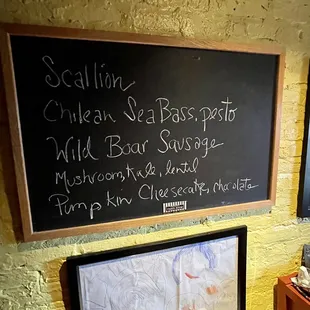 Scallion
Chilean Sea Bass, pesto
Wild Boar Sausage
Mushroom, Kale, lentil
Pumpkin Cheesecake, chocolate